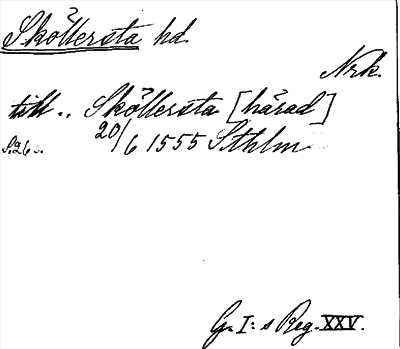 Sköllersta hd.
Nrk.
till.. Sköllersta [härad]
S.26. 20/6 1555 Sthlm
G. I: s Reg. XXV.